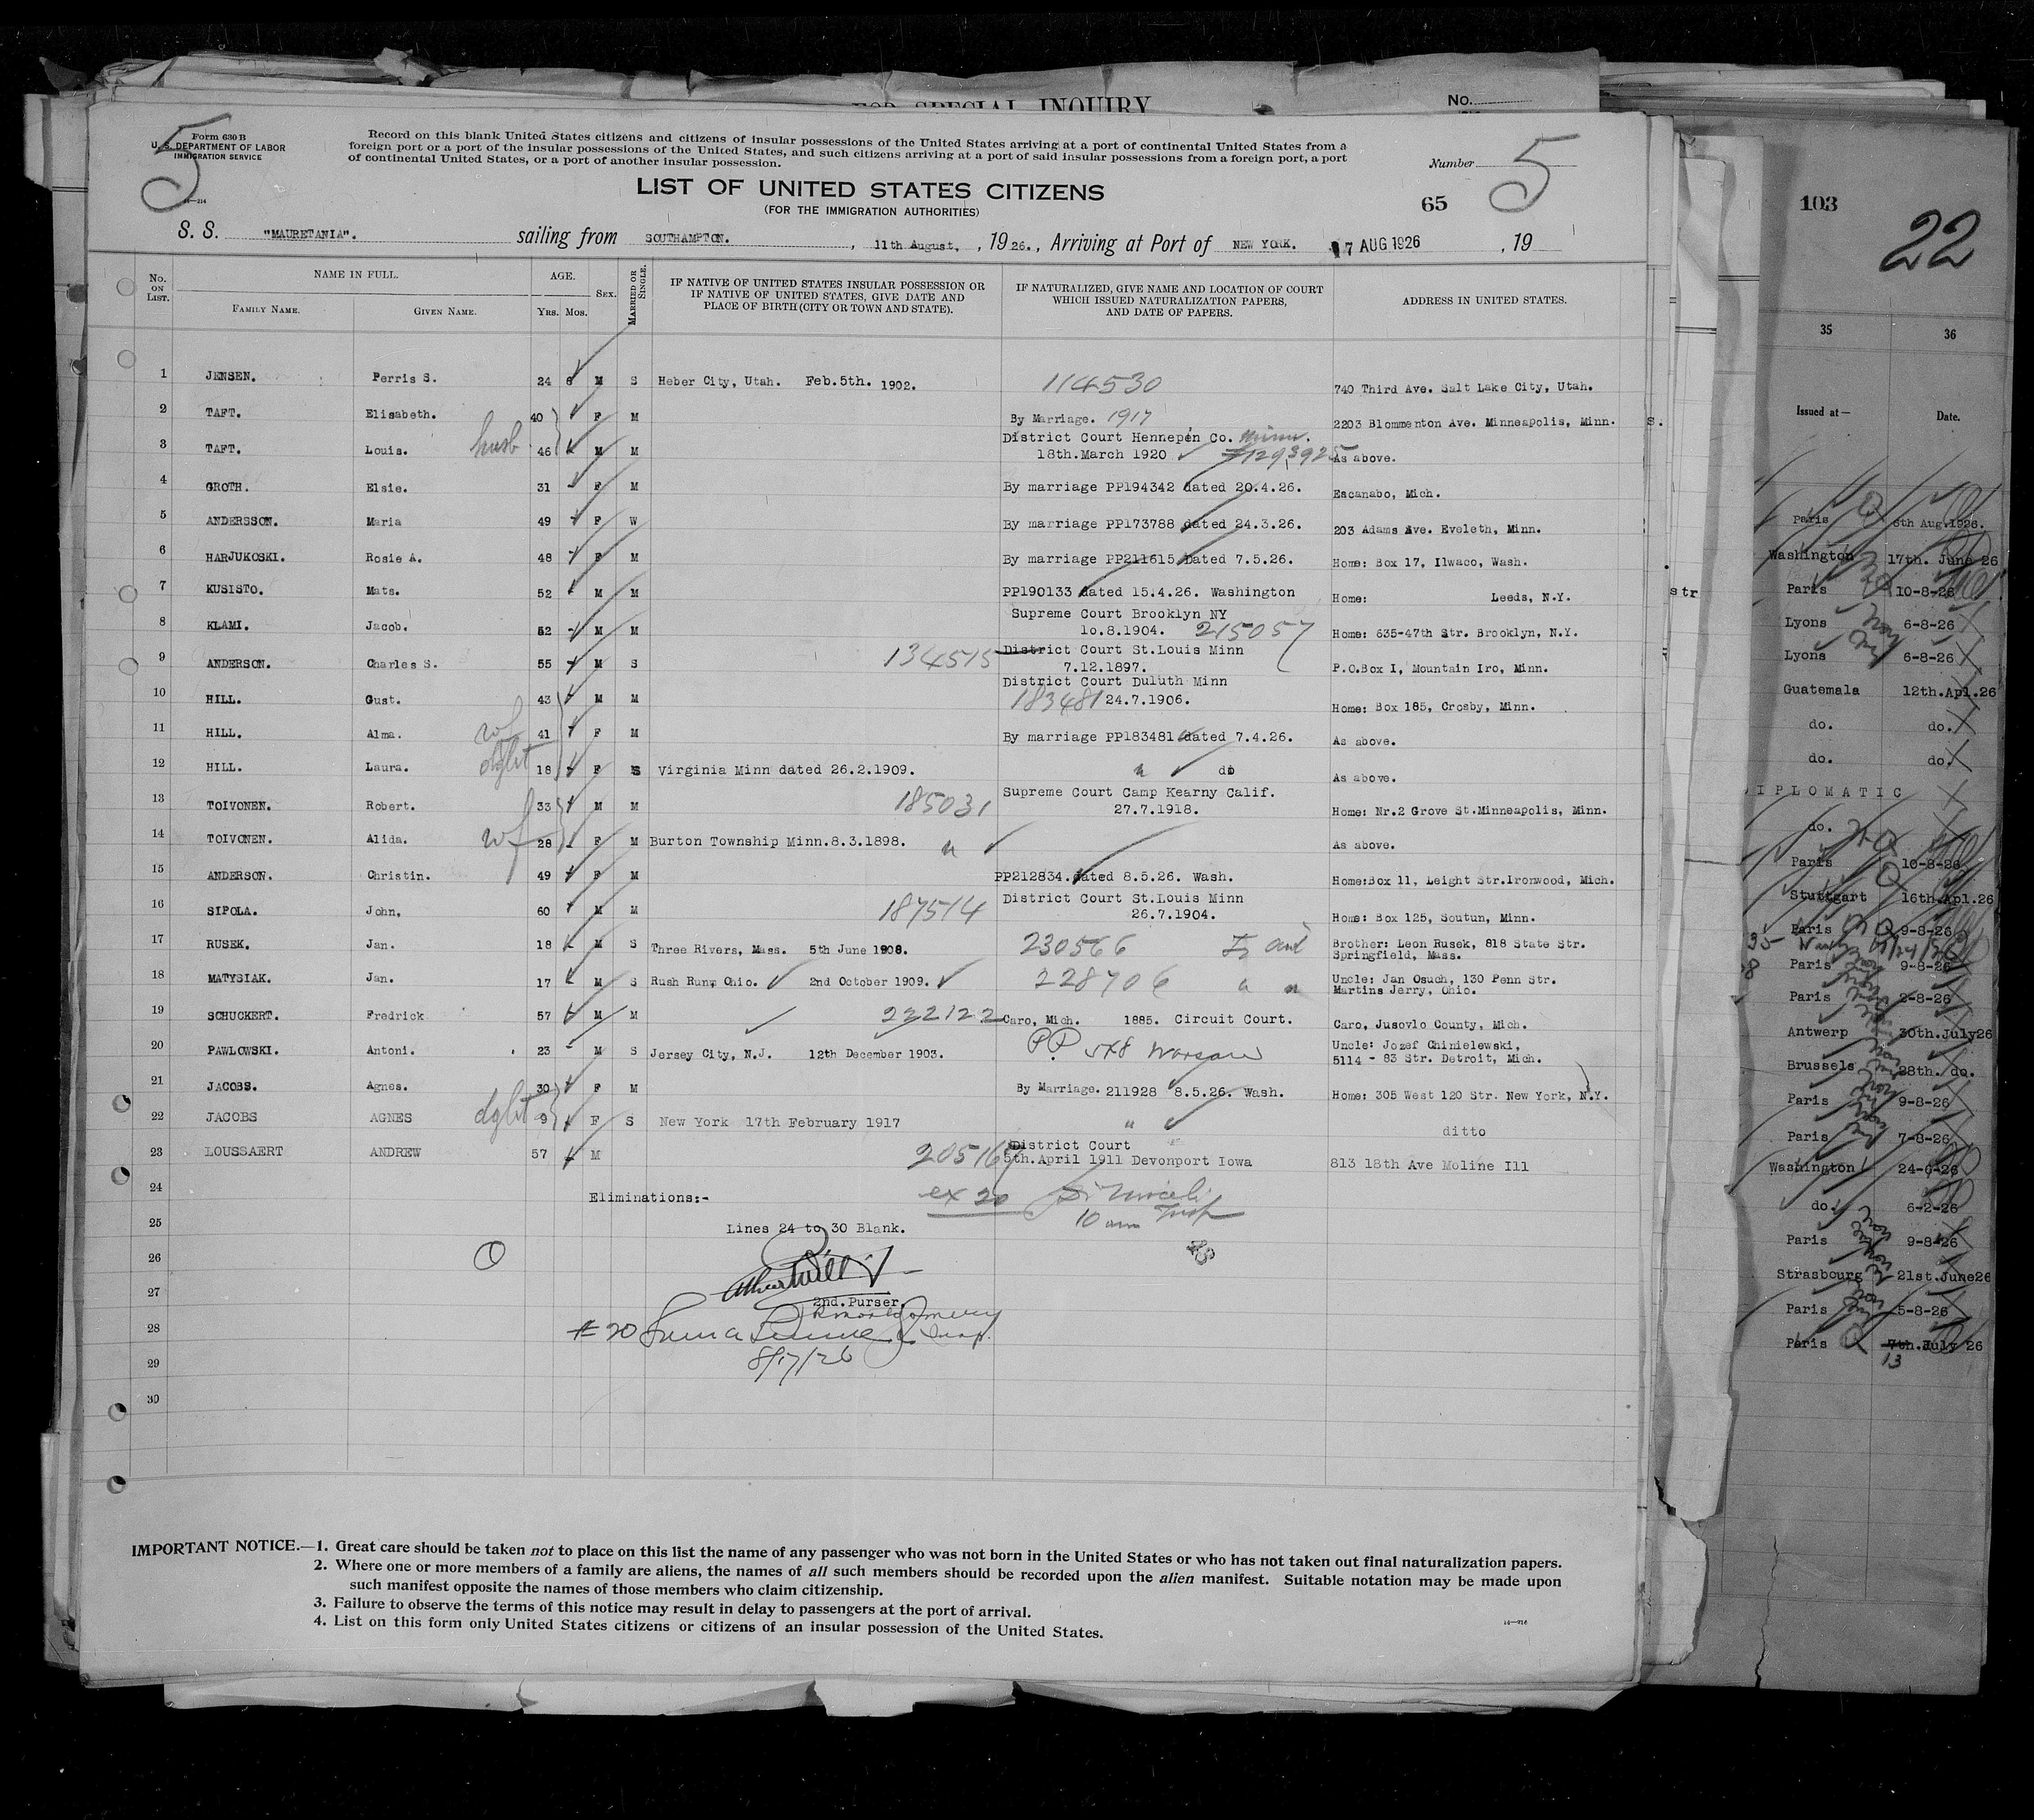 FOR SPECIAL INQUIRY
No.
5
Form 630 B
U. S. DEPARTMENT OF LABOR
IMMIGRATION SERVICE
14—214
Record on this blank United States citizens and citizens of insular possessions of the United States arriving at a port of continental United States from a
foreign port or a port of the insular possessions of the United States, and such citizens arriving at a port of said insular possessions from a foreign port, a port
of continental United States, or a port of another insular possession.
Number 5
LIST OF UNITED STATES CITIZENS
(FOR THE IMMIGRATION AUTHORITIES)
65
S. S. "MAURETANIA". sailing from SOUTHAMPTON. , 11th August, , 1926. , Arriving at Port of NEW YORK. 17 AUG 1926 , 19
No. ON LIST. NAME IN FULL. FAMILY NAME. GIVEN NAME. AGE. Yrs. Mos. SEX. MARRIED OR SINGLE. IF NATIVE OF UNITED STATES INSULAR POSSESSION OR IF NATIVE OF UNITED STATES, GIVE DATE AND PLACE OF BIRTH (CITY OR TOWN AND STATE). IF NATURALIZED, GIVE NAME AND LOCATION OF COURT WHICH ISSUED NATURALIZATION PAPERS, AND DATE OF PAPERS. ADDRESS IN UNITED STATES.
1 JENSEN. Perris S. 24 6 M S Heber City, Utah. Feb.5th. 1902. 114530 740 Third Ave. Salt Lake City, Utah.
2 TAFT. Elisabeth. 40 F M By Marriage. 1917 2203 Blommenton Ave. Minneapolis, Minn.
3 TAFT. Louis. husb 46 M M District Court Hennepin Co. Minn.
18th.March 1920 #1293925 As above.
4 GROTH. Elsie. 31 F M By marriage PP194342 dated 20.4.26. Escanabo, Mich.
5 ANDERSSON. Maria 49 F W By marriage PP173788 dated 24.3.26. 203 Adams Ave. Eveleth, Minn.
6 HARJUKOSKI. Rosie A. 48 F M By marriage PP211615 Dated 7.5.26. Home: Box 17, Ilwaco, Wash.
7 KUSISTO. Mats. 52 M M PP190133 dated 15.4.26. Washington Home: Leeds, N.Y.
8 KLAMI. Jacob. 52 M M Supreme Court Brooklyn NY
10.8.1904. 215057 Home: 635-47th Str. Brooklyn, N.Y.
9 ANDERSON. Charles S. 55 M S 134515 District Court St.Louis Minn
7.12.1897. P.O.Box I, Mountain Iro, Minn.
10 HILL. Gust. 43 M M District Court Duluth Minn
183481 24.7.1906. Home: Box 185, Crosby, Minn.
11 HILL. Alma. wf 41 F M By marriage PP183481 dated 7.4.26. As above.
12 HILL. Laura. dght 18 F S Virginia Minn dated 26.2.1909. " do As above.
13 TOIVONEN. Robert. 33 M M 185031 Supreme Court Camp Kearny Calif.
27.7.1918. Home: Nr.2 Grove St.Minneapolis, Minn.
14 TOIVONEN. Alida. wf 28 F M Burton Township Minn.8.3.1898. " As above.
15 ANDERSON. Christin. 49 F M PP212834.dated 8.5.26. Wash. Home:Box 11, Leight Str.Ironwood, Mich.
16 SIPOLA. John, 60 M M 187514 District Court St.Louis Minn
26.7.1904. Home: Box 125, Soutun, Minn.
17 RUSEK. Jan. 18 M S Three Rivers, Mass. 5th June 1908. 230566 Brother: Leon Rusek, 818 State Str.
Springfield, Mass.
18 MATYSIAK. Jan. 17 M S Rush Run, Ohio. 2nd October 1909. 228706 " " Uncle: Jan Osuch, 130 Penn Str.
Martins Jerry, Ohio.
19 SCHUCKERT. Fredrick 57 M M 222122 Caro, Mich. 1885. Circuit Court. Caro, Jusovlo County, Mich.
20 PAWLOWSKI. Antoni. 23 M S Jersey City, N.J. 12th December 1903. PP 548 Warsaw Uncle: Jozef Chinielewski,
5114 - 83 Str. Detroit, Mich.
21 JACOBS. Agnes. 30 F M By Marriage. 211928 8.5.26. Wash. Home: 305 West 120 Str. New York, N.Y.
22 JACOBS AGNES dght 9 F S New York 17th February 1917 " ditto
23 LOUSSAERT ANDREW 57 M 205167 District Court
5th.April 1911 Devonport Iowa 813 18th Ave Moline Ill
24 Eliminations:- ex 20
10 am
25 Lines 24 to 30 Blank.
26
27 2nd.Purser.
28 # 20 Insp.
29 8/17/26
30
IMPORTANT NOTICE.—1. Great care should be taken not to place on this list the name of any passenger who was not born in the United States or who has not taken out final naturalization papers.
2. Where one or more members of a family are aliens, the names of all such members should be recorded upon the alien manifest. Suitable notation may be made upon
such manifest opposite the names of those members who claim citizenship.
3. Failure to observe the terms of this notice may result in delay to passengers at the port of arrival.
4. List on this form only United States citizens or citizens of an insular possession of the United States.
S.
str
103
22
35 36
Issued at— Date.
Paris 6th Aug.1926.
Washington 17th. June 26
Paris 10-8-26
Lyons 6-8-26
Lyons 6-8-26
Guatemala 12th.Apl.26
do. do.
do. do.
DIPLOMATIC
do.
Paris 10-8-26
Stuttgart 16th.Apl.26
Paris 9-8-26
Paris 9-8-26
Paris 2-8-26
Antwerp 30th.July26
Brussels 28th. do.
Paris 9-8-26
Paris 7-8-26
Washington 24-6-26
do. 6-2-26
Paris 9-8-26
Strasbourg 21st.June26
Paris 5-8-26
Paris 7th.July 26
13